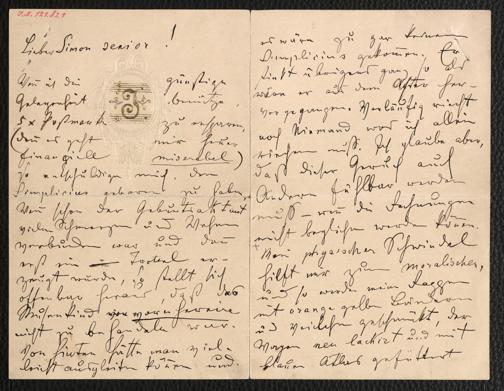 Lieber Simon senior!
Um in die günstige
Gelegenheit benütze
5 x Postmark zu ersparen,
(denn es geht mir heuer
finanziell miserabel)
zu entschuldigen mich, den
Simplicius geboren zu haben.
Wenn schon der Geburtsakt mit
vielen Schmerzen und Wehen
verbunden war und dann
erst in Torkel er-
zeugt wurde, so stellt sich
offenbar heraus daß das
Musenkind von vorn herein
nicht zu behandeln war.
Von hinten hätte man viel-
leicht ausgleiten können und
es wäre zu gar keinem
Simplicius gekommen. Er
stinkt übrigens ganz so als
wäre er aus dem After her-
vorgegangen. Vorläufig riecht
noch Niemand was ich allein
riechen muß. Ich glaube aber,
daß dieser Geruch auch
Andern fühlbar werden
muß – wenn die Rechnungen
nicht beglichen werden können.
Mein physischer Schwindel
hilft mir zum moralischen,
und so werde mein Wagen
mit orange gelben Bändern
und Veilchen geschmückt, der
Wagen neu lackirt und mit
blauen Atlas gefüttert